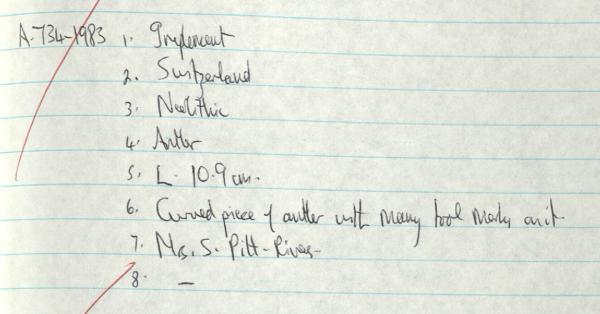 A.734-1983 1. Implement
2. Switzerland
3. Neolithic
4. Antler
5. L. 10.9 cm.
6. Curved piece of antler with many tool marks on it.
7. Mrs. S. Pitt-Rivers
8. —